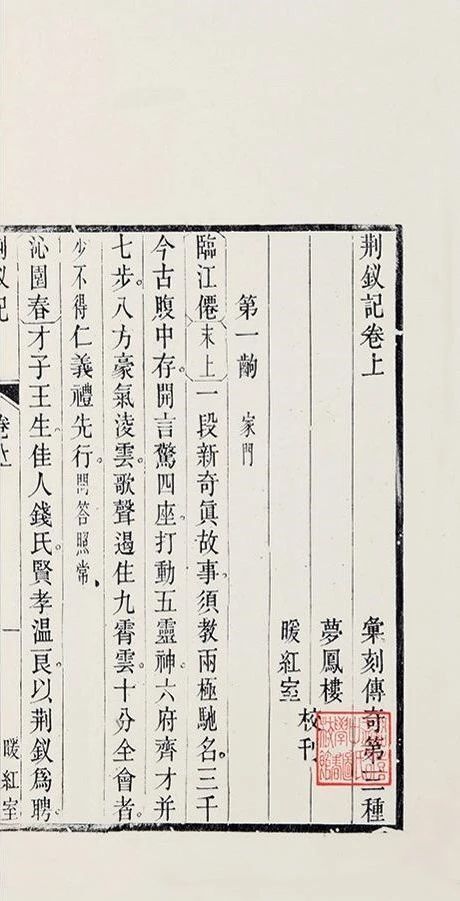 荆釵記卷上
彙刻傳奇第種
夢鳳樓
暖紅室
校刊
第一齣 家門
臨江僊 末上 一段新奇眞故事。須教兩極馳名。三千
今古腹中存。開言驚四座。打動五靈神。六府齊才并
七步。八方豪氣淩雲。歌聲遏住九霄雲。十分全會者。
少不得仁義禮先行。問答照常
沁園春 才子王生。佳人錢氏。賢孝溫良。以荆釵爲聘。
荆釵記
卷上
一
暖紅室